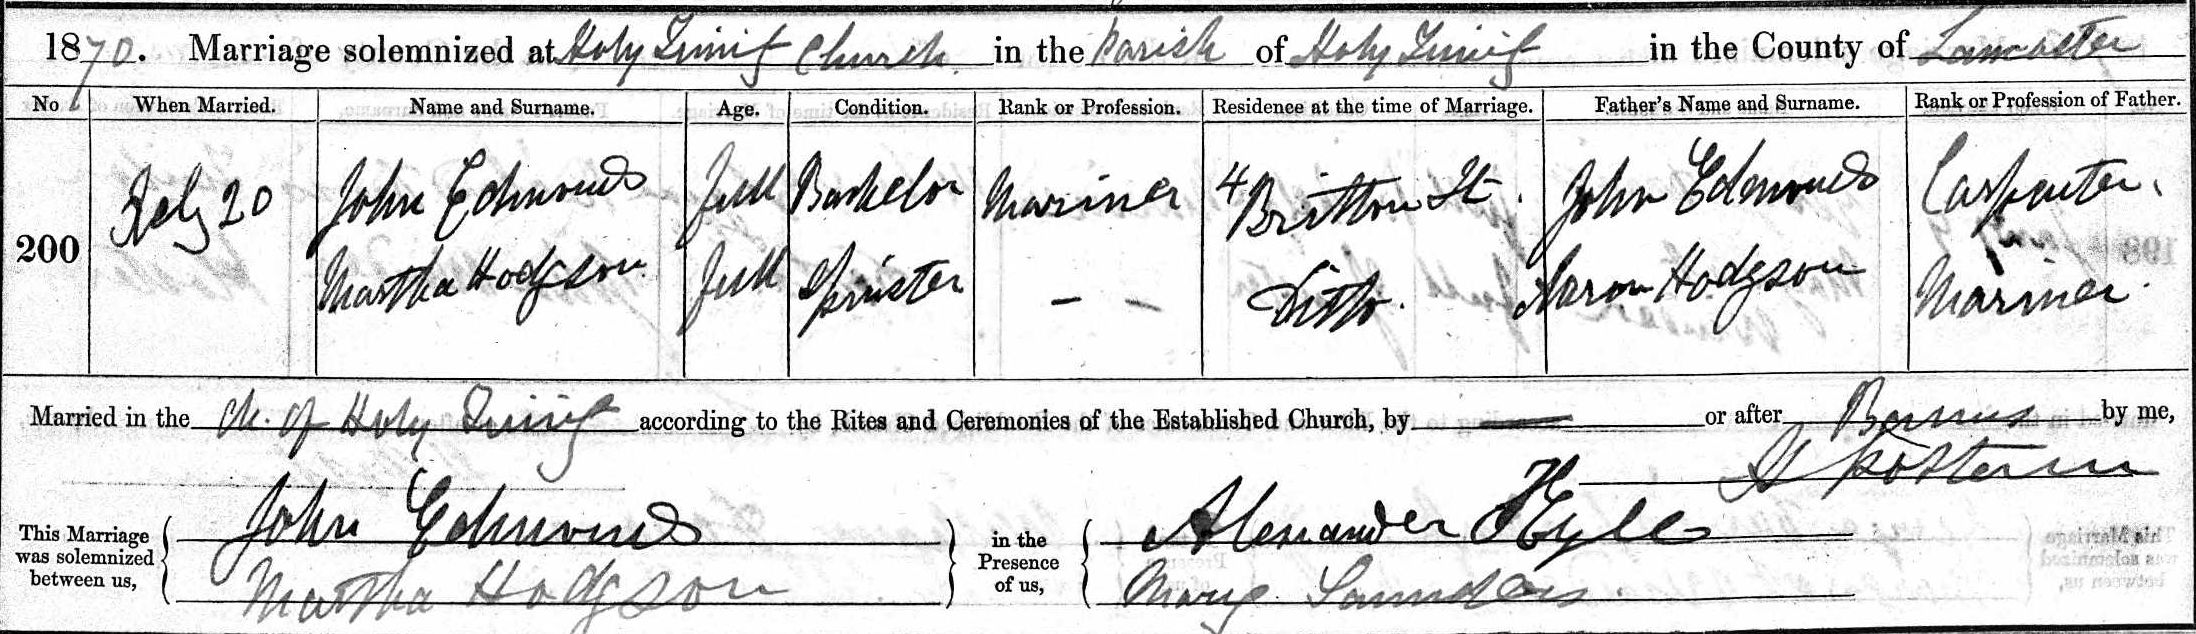 1870. Marriage solemnized at Holy Trinity Church in the Parish of Holy Trinity in the County of Lancaster
No When Married. Name and Surname. Age. Condition. Rank or Profession. Residence at the time of Marriage. Father's Name and Surname. Rank or Profession of Father.
200 July 20 John Edmonds Full Bachelor Mariner 4 Britton St. John Edmonds Carpenter.
Martha Hodgson Full Spinster — — Ditto. Aaron Hodgson Mariner.
Married in the Ch. of Holy Trinity according to the Rites and Ceremonies of the Established Church, by — or after Banns by me,
John Edmonds Alexander Kyle
This Marriage was solemnized between us, in the Presence of us,
Martha Hodgson Mary Saunders.